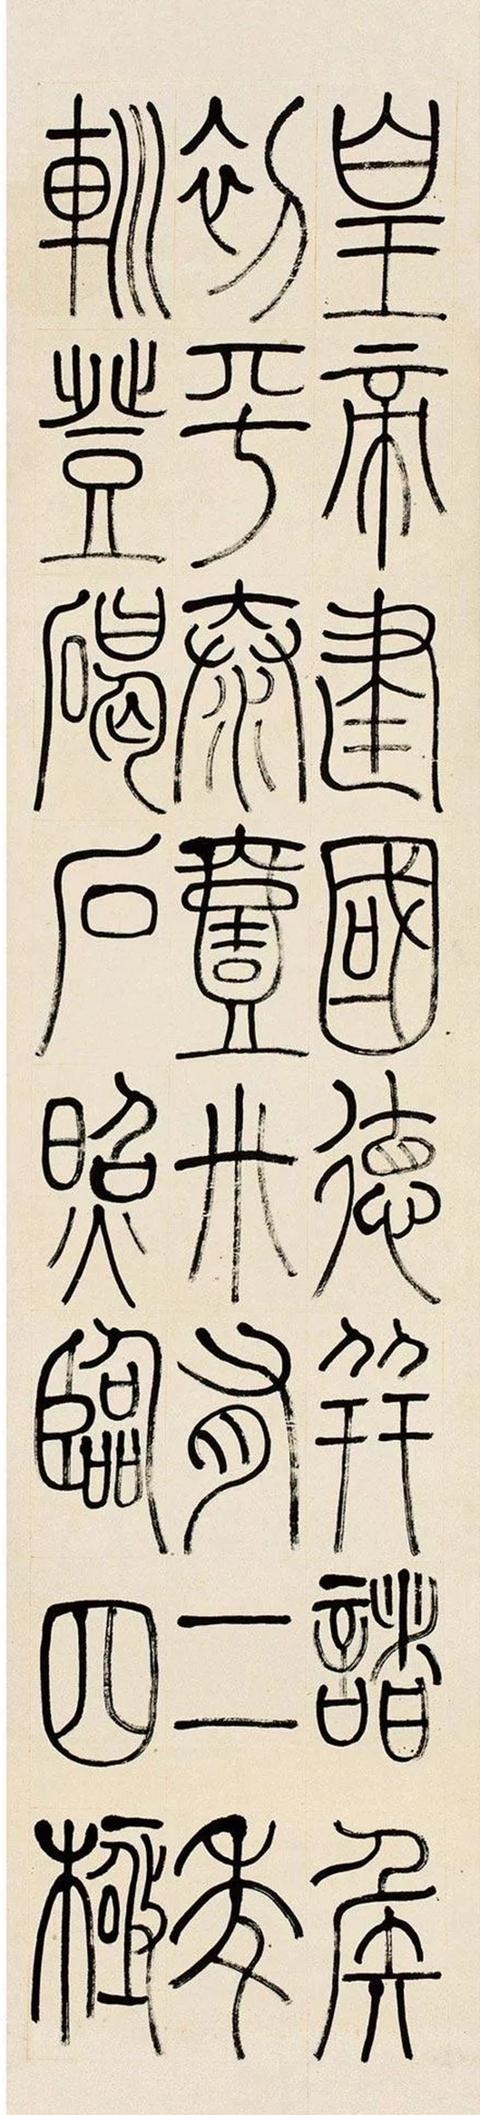 皇帝建國德并諸侯
初平泰壹卅有二年
巡登碣石照臨四極